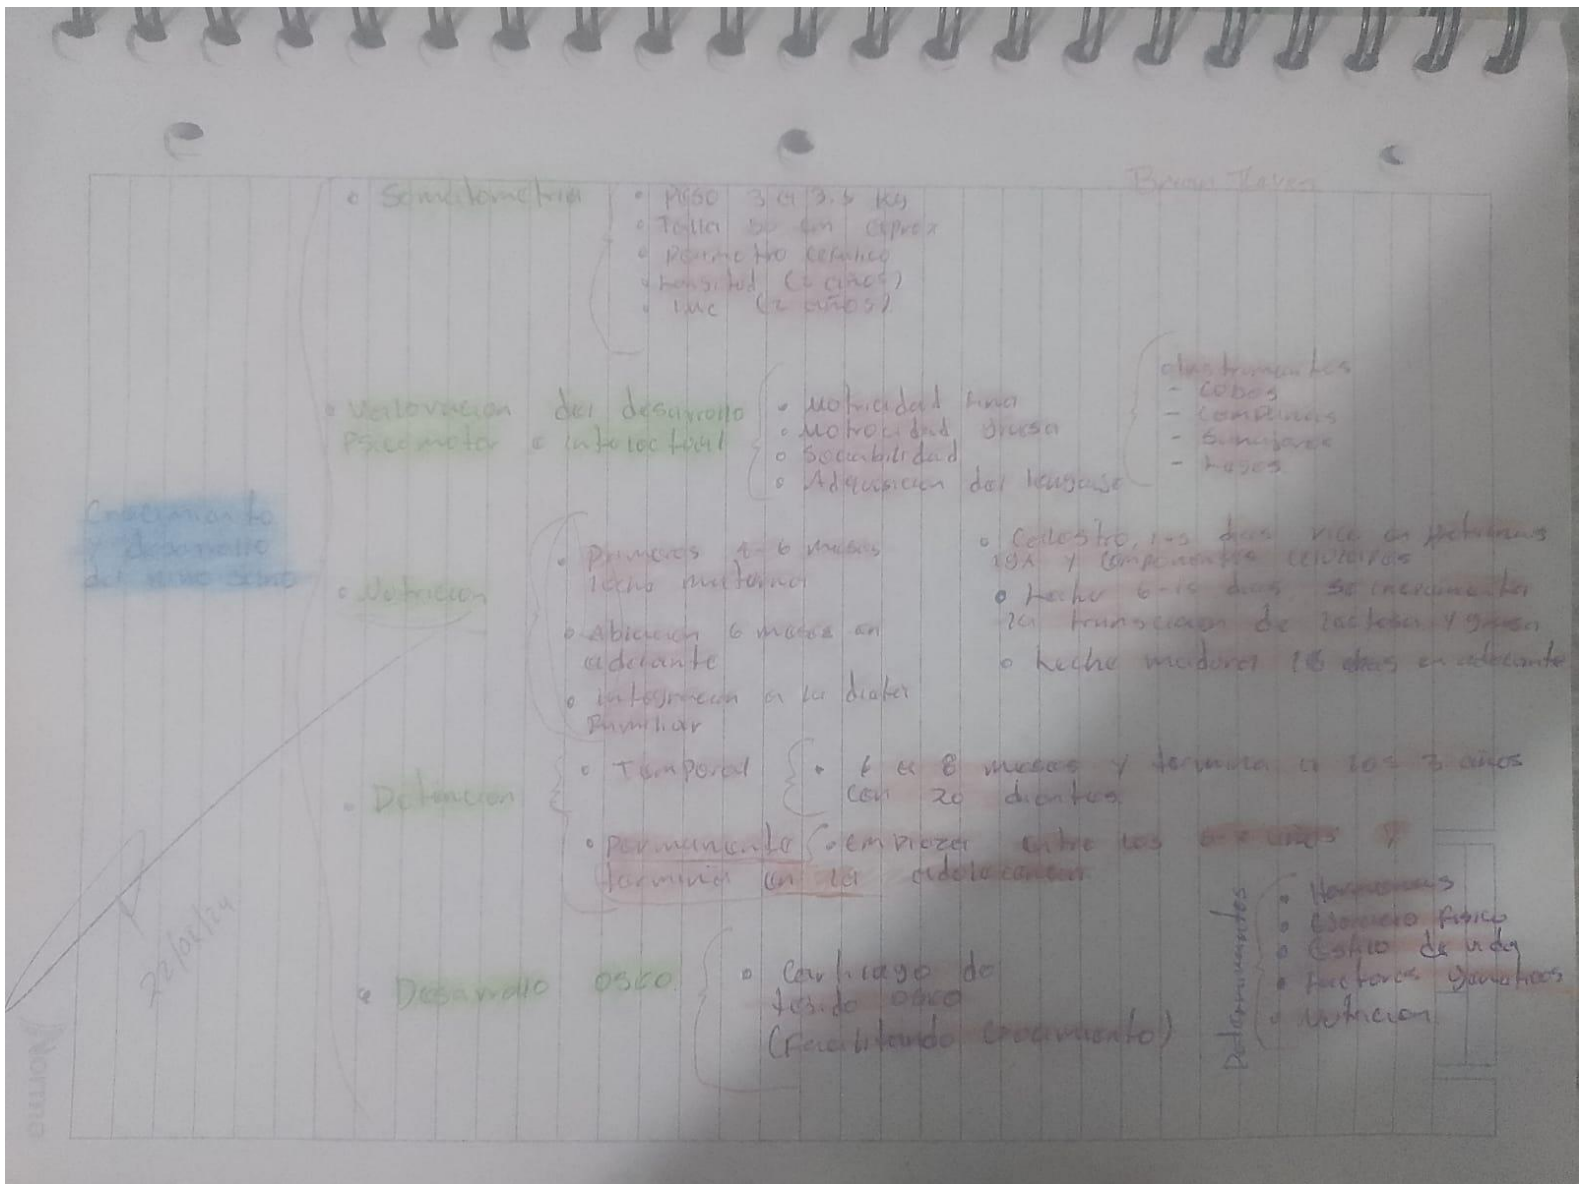 • Somatometria
• Peso 3 a 3.5 Kg
• Talla 50 cm aprox
• Perimetro cefalico
• Longitud (2 años)
• IMC (2 años)
• Valoracion del desarrollo
Psicomotor e intelectual
• Motricidad fina
• Motrocidad gruesa
• Sociabilidad
• Adquisicion del lenguaje
• Instrumentos
- Cubos
- Campanas
- Sonajeros
Crecimiento
y desarrollo
del niño sano
• Nutricion
• Primeros 4-6 meses
leche materna
• Ablacion 6 meses en
adelante
• integracion a la dieta
Familiar
• Calostro, 1-5 dias rico en proteinas
IgA y componentes celulares
• Leche 6-15 dias, se incrementa
la transicion de lactosa y grasa
• Leche madura 15 dias en adelante
• Detencion
• Temporal
• 6 a 8 meses y termina a los 3 años
con 20 dientes
• Permanente
• empieza entre los años y
termina en la adolecencia
• Desarrollo oseo
• Cartilago de
tejido oseo
(Facilitando crecimiento)
Determinantes
• Hormonas
• Ejercicio fisico
• Estilo de vida
• Factores geneticos
• Nutricion
Norma